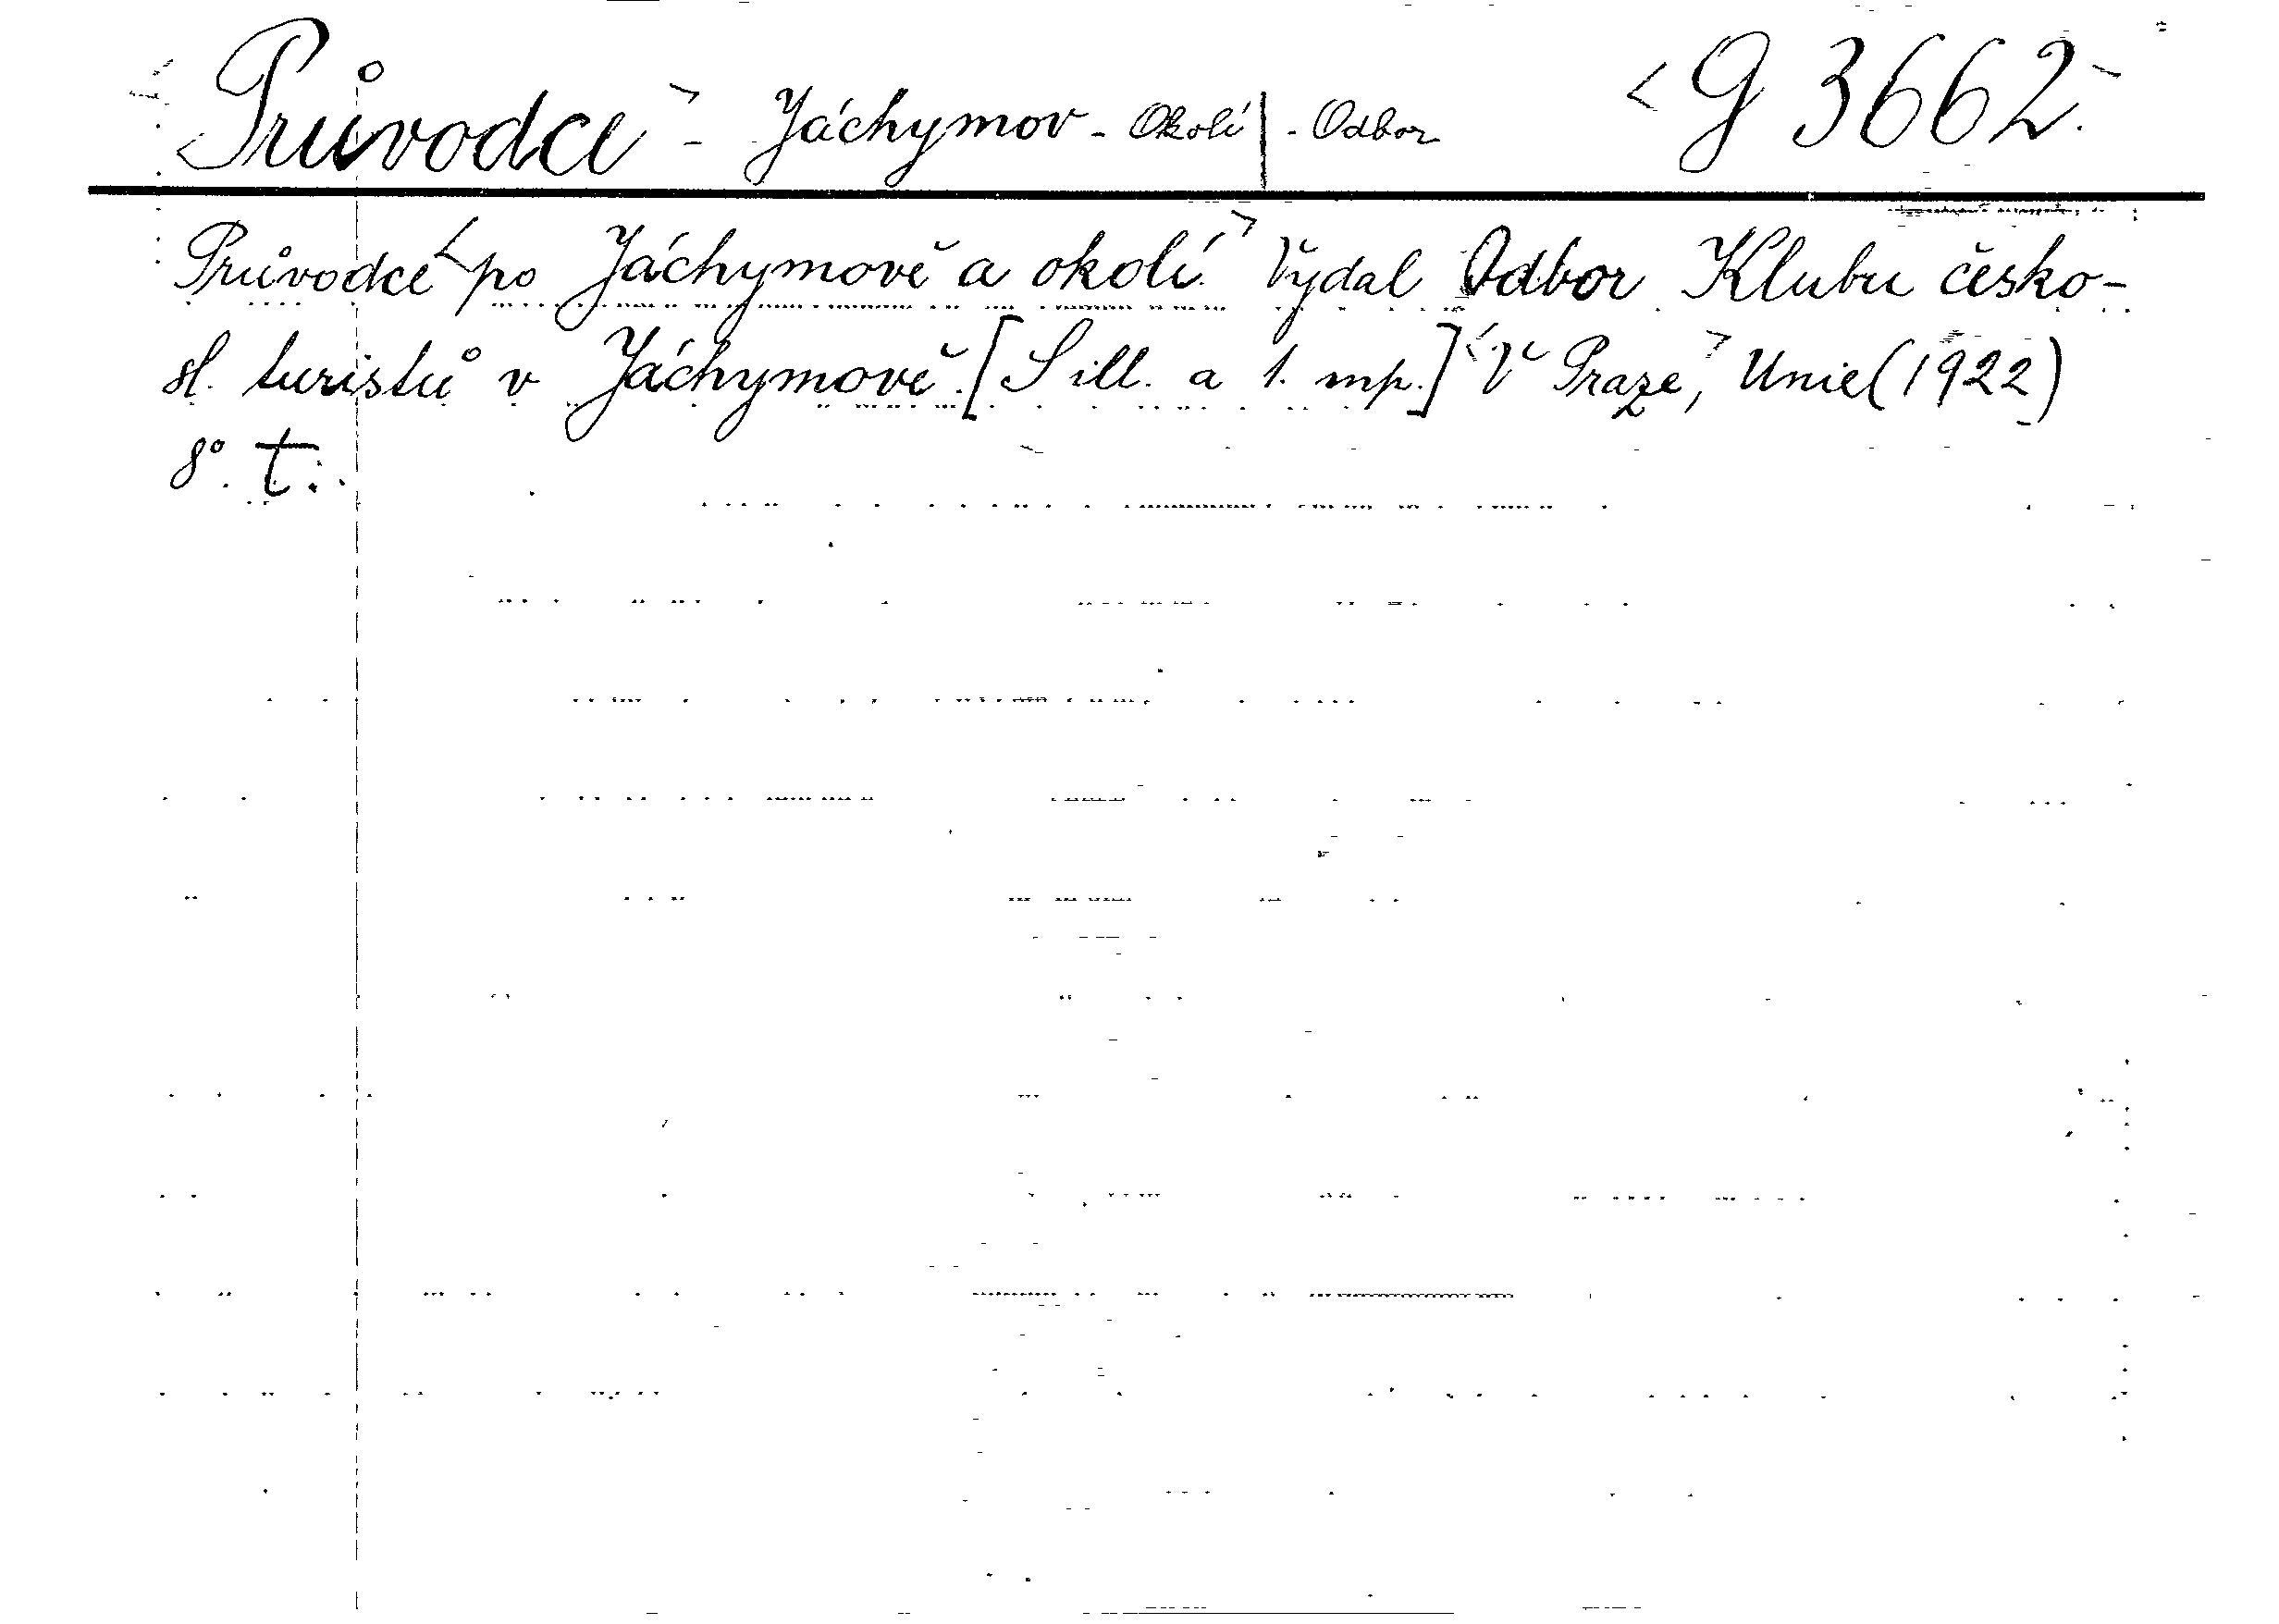 Průvodce - Jáchymov - Okolí | - Odbor G 3662.
Průvodce po Jáchymově a okolí. Vydal Odbor Klubu česko-
sl. turistů v Jáchymově. [S ill. a 1. mp.] V Praze, Unie (1922)
8°. t.